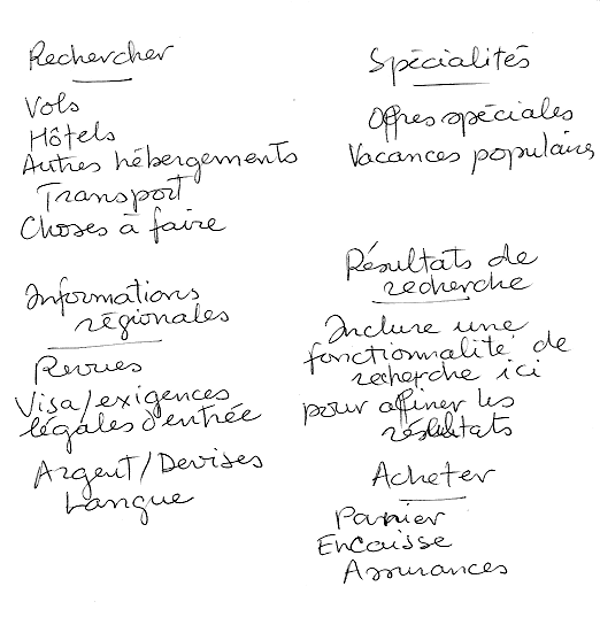 Rechercher
Vols
Hôtels
Autres hébergements
Transport
Choses à faire
Informations
régionales
Revues
Visa/exigences
légales d'entrée
Argent/Devises
Langue
Spécialités
Offres spéciales
Vacances populaires
Résultats de
recherche
Inclure une
fonctionnalité de
recherche ici
pour affiner les
résultats
Acheter
Panier
Encaisse
Assurances